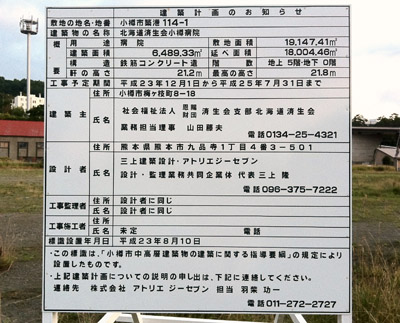 建築計画のお知らせ
敷地の地名・地番 小樽市築港 114-1
建築物の名称 北海道済生会小樽病院
概要 用途 病院 敷地面積 19,147.41㎡
建築面積 6,489.33㎡ 延べ面積 18,004.46㎡
構造 鉄筋コンクリート造 階数 地上 5階・地下 0階
軒の高さ 21.2m 最高の高さ 21.8m
工事予定期間 平成23年12月1日から 平成25年7月31日まで
建築主 住所 小樽市梅ヶ枝町8-18
氏名 社会福祉法人 恩賜財団 済生会支部北海道済生会
業務担当理事 山田藤夫
電話 0134-25-4321
設計者 住所 熊本県熊本市九品寺1丁目4番3-501
氏名 三上建築設計・アトリエジーセブン
設計・監理業務共同企業体 代表三上 隆
電話 096-375-7222
工事監理者 住所 設計者に同じ
氏名 設計者に同じ
工事施工者 住所
氏名 未定 電話
標識設置年月日 平成23年8月10日
・この標識は、「小樽市中高層建築物の建築に関する指導要綱」の規定により
設置したものです。
・上記建築計画についての説明の申し出は、下記に連絡してください。
連絡先 株式会社 アトリエ ジーセブン 担当 羽柴 功一
電話 011-272-2727